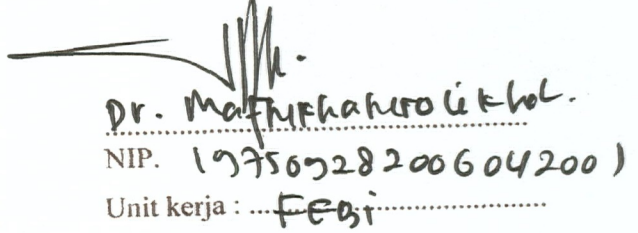 Dr. Mafhukhatusolikhah.
NIP. 197509282006042001
Unit kerja : FEBi